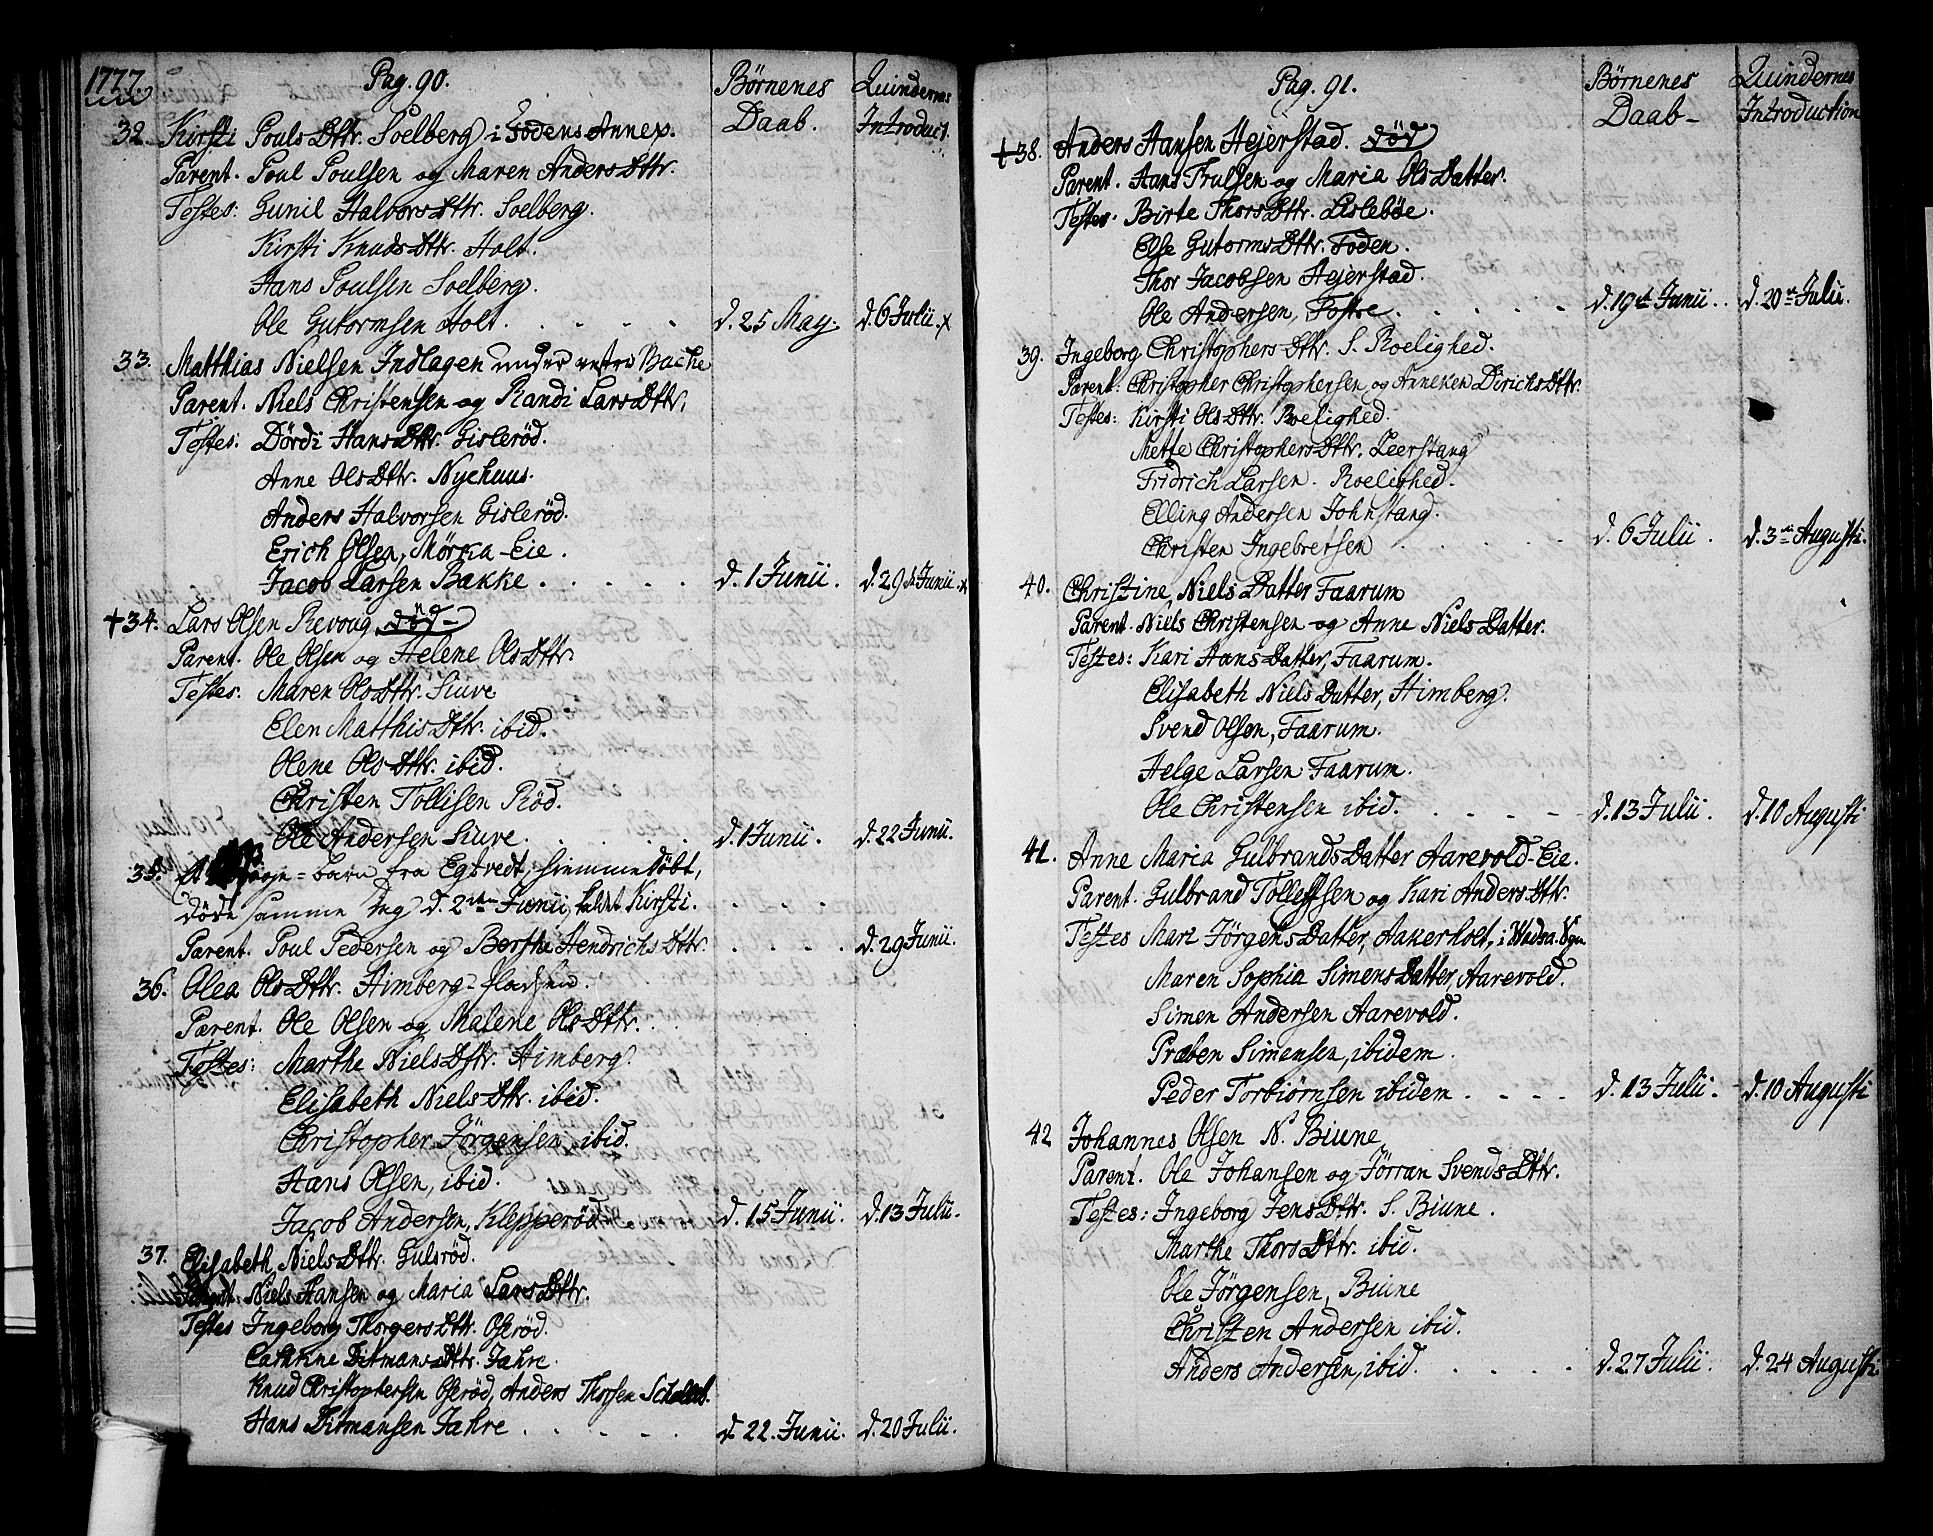 1777.
Pag. 90.
Børnenes Daab.
Quindernes Introduct.
32. Kirsti Pouls Dttr. Soelberg i Fodens Annex.
Parent. Poul Poulsen og Maren Anders Dttr.
Testes: Gunil Halvors Dttr. Soelberg.
Kirsti Knuds Dttr. Holt.
Hans Poulsen Soelberg.
Ole Gutormsen Holt. d. 25 May. d. 6 Julii.
33. Matthias Nielsen Indlagen under Backe
Parent. Niels Christensen og Randi Lars Dttr.
Testes: Dördi Hans Dttr. Gisleröd.
Anne Ols Dttr. Nyehuus.
Anders Halvorsen Gisleröd.
Erich Olsen, Mörna-Eie.
Jacob Larsen Bakke. d. 1 Junii. d. 29 Junii.
+34. Lars Olsen Revoug död-
Parent. Ole Olsen og Helene Ols Dttr.
Testes: Maren Ols Dttr. Siuve
Elen Matthis Dttr. ibid.
Olene Ols Dttr. ibid.
Christen Tollisen Röd.
Ole Andersen Siuve. d. 1 Junii. d. 22 Junii.
35. barn fra Egtvedt, hiemmedöbt,
döde samme Dag d. 2den Junii, kaldet Kirsti.
Parent. Poul Pedersen og Berthe Hendrichs Dttr. d. 29 Junii.
36. Olea Ols Dttr. Himberg-pladsen.
Parent. Ole Olsen og Malene Ols Dttr.
Testes: Marthe Niels Dttr. Himberg.
Elisabeth Niels Dttr. ibid.
Christopher Jörgensen ibid.
Hans Olsen, ibid.
Jacob Andersen, Klepperöd. d. 15 Junii. d. 13 Julii.
37. Elisabeth Niels Dttr. Gulsröd.
Parent. Niels Hansen og Maria Lars Dttr.
Testes Ingeborg Thorgers Dttr. Oseröd.
Cathrine Ditmans Dttr. Jahre.
Knud Christophersen Oseröd, Anders Thorsen
Hans Ditmansen Jahre. d. 22. Junii. d. 20 Julii.
Pag. 91.
Børnenes Daab-
Quindernes Introduction
+38. Anders Hansen Hejerstad. död
Parent. Hans Trulsen og Maria Ols Datter.
Testes. Birte Thors Dttr. Lislebøe.
Else Gutorms Dttr. Foden.
Thor Jacobsen Hejerstad.
Ole Andersen, Fostre. d. 19de Junii. d. 20de Julii.
39. Ingeborg Christophers Dttr. S. Roelighed.
Parent. Christopher Christophersen og Anneken Dirichs Dttr.
Testes: Kirsti Ols Dttr. Roelighed.
Mette Christophers Dttr. Leerstang
Fridrich Larsen. Roelighed.
Elling Andersen Johnstang.
Christen Ingebretsen d. 6 Julii. d. 3die Augusti.
40. Christine Niels Datter Faarum
Parent. Niels Christensen og Anne Niels Datter.
Testes: Kari Hans Datter, Faarum.
Elisabeth Niels Datter, Himberg.
Svend Olsen, Faarum.
Helge Larsen Faarum.
Ole Christensen ibid. d. 13 Julii. d. 10 Augusti
41. Anne Maria Gulbrands Datter Aarevold-Eie.
Parent. Gulbrand Tollefssen og Kari Anders Dttr.
Testes Mari Jörgens Datter, Aakerholt, i
Maren Sophia Simens Datter, Aarevold.
Simen Andersen Aarevold.
Præben Simensen, ibidem.
Peder Torbiörnsen ibidem. d. 13 Julii. d. 10 Augusti
42 Johannes Olsen N. Biune
Parent. Ole Johansen og Jörran Svends Dttr.
Testes: Ingeborg Jens Dttr. S. Biune.
Marthe Thors Dttr. ibid.
Ole Jörgensen, Biune
Christen Andersen ibid.
Anders Andersen, ibid. d. 27 Julii. d. 24 Augusti